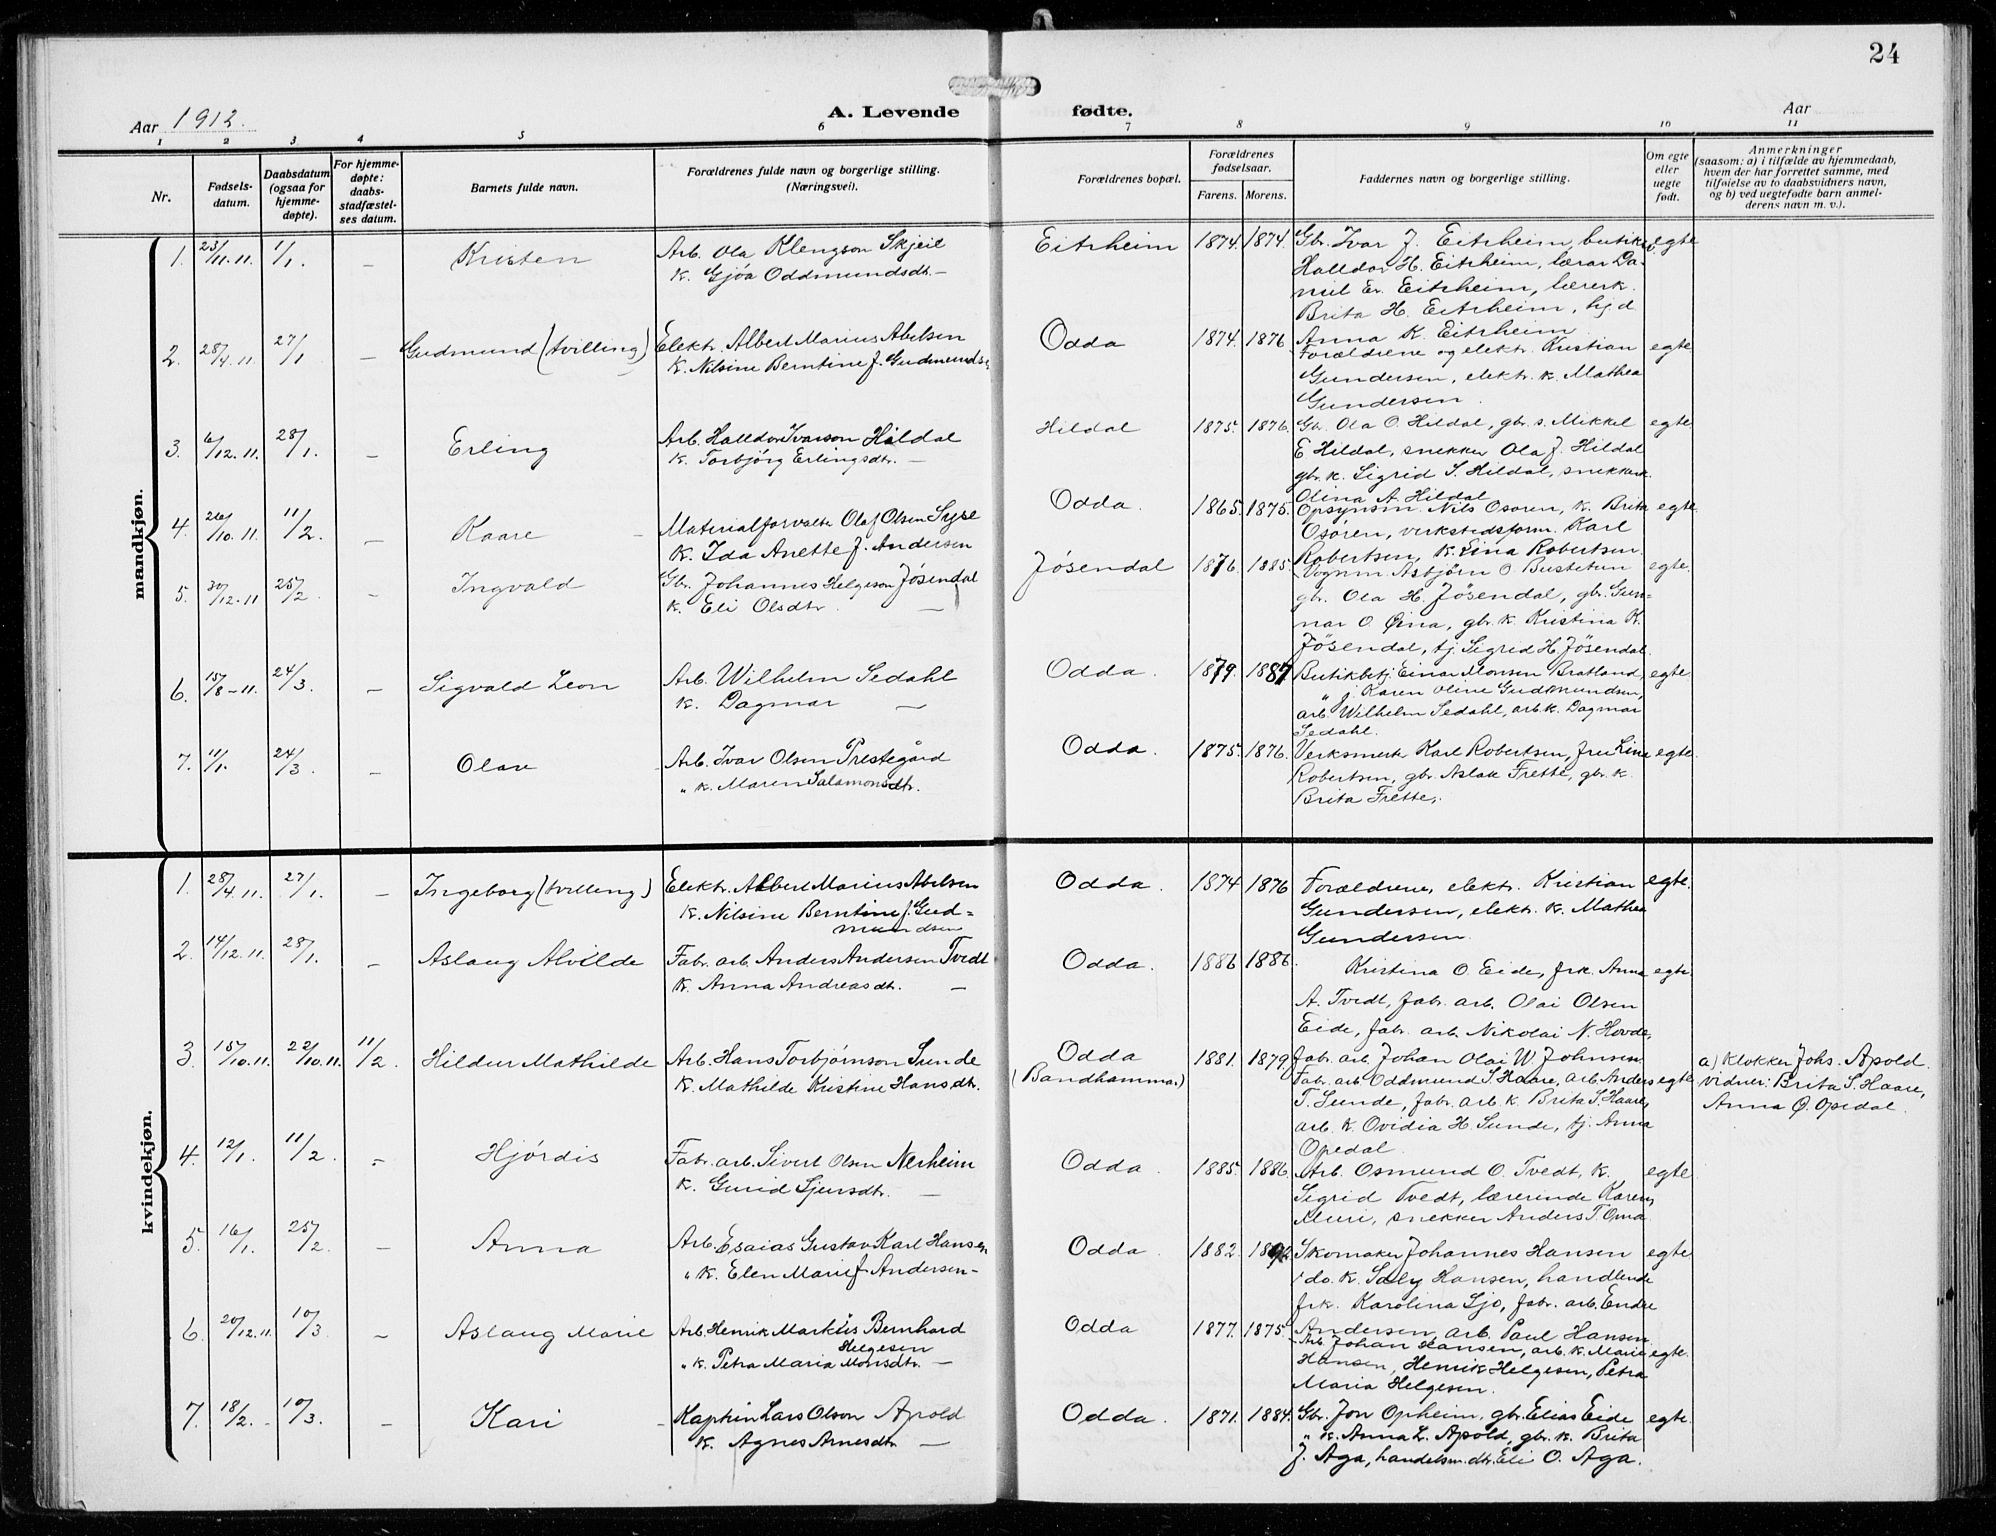 24
Aar 1912.
A. Levende fødte.
Aar
1 2 3 4 5 6 7 8 9 10 11
Nr.
Fødsels-
datum.
Daabsdatum
(ogsaa for
hjemme-
døpte).
For hjemme-
døpte:
daabs-
stadfæstel-
ses datum.
Barnets fulde navn.
Forældrenes fulde navn og borgerlige stilling.
(Næringsvei).
Forældrenes bopæl.
Forældrenes
fødselsaar.
Farens. Morens.
Faddernes navn og borgerlige stilling.
Om egte
eller
uegte
født.
Anmerkninger
(saasom: a) i tilfælde av hjemmedaab,
hvem der har forrettet samme, med
tilføielse av to daabsvidners navn,
og b) ved uegtefødte barn anmel-
derens navn m. v.).
mandkjøn.
1. 23/11.11. 1/1. – Kristen
Arb. Ola Klengson Skjeil
k. Gjøa Oddmundsdt. –
Eitrheim 1874. 1874.
Gbr. Ivar J. Eitrheim, butikk
Halldor H. Eitrheim, lærar Da-
niel Er. Eitrheim, lærerk.
Brita H. Eitrheim, hjd
Anna K. Eitrheim
egte
2. 28/4.11. 27/1 – Gudmund (tvilling)
Elektr. Albert Marius Abelsen
k. Nilsine Berntine f. Gudmunds.
Odda 1874. 1876
Forældrene og elektr. Kristian
Gundersen, elektr. k. Mathea
Gundersen.
egte
3. 6/12.11. 28/1. – Erling
Arb. Halldor Ivarson Hildal
k. Torbjørg Erlingsdtr. –
Hildal 1875. 1876.
Gbr. Ola O. Hildal, gbr. s. Mikkel
E Hildal, snekker Ola J. Hildal
gbr. k. Sigrid S. Hildal, snekkerk
Olina A. Hildal
egte
4. 26/10.11. 11/2. – Kaare
Materialforvalter Olaf Olsen Syse
k. Ida Anette f. Andersen
Odda. 1865. 1875.
Opsynsm. Nils Osøren, k. Brita
Osøren, verkstedsform. Karl
Robertsen, k. Lina Robertsen.
egte.
5. 30/12.11 25/2. – Ingvald
Gbr. Johannes Helgeson Jøsendal
k. Eli Olsdtr. –
Jøsendal 1876. 1885.
Vognm. Asbjørn O. Bustetun
gbr. Ola H. Jøsendal, gbr. Gun-
nar O. Øina, gbr. k. Kristina K.
Jøsendal, tj. Sigrid H. Jøsendal.
egte.
6. 15/8-11. 24/3. – Sigvald Leon
Arb. Wilhelm Sedahl
k. Dagmar –
Odda. 1879. 1887
Butikbetj. Einar Monsen Bratland,
" j. Karen Oline Gudmundsen,
arb. Wilhelm Sedahl, arb. k. Dagmar
Sedahl.
egte
7. 11/1. 24/3. – Olav
Arb. Ivar Olsen Prestegård
" k. Maren Salamonsdtr.
Odda. 1875. 1876.
Verksmestr Karl Robertsen, fru Lina
Robertsen, gbr. Aslak Frette, gbr. k.
Brita Frette,
egte.
kvindekjøn.
1. 28/4.11. 27/1. – Ingeborg (tvilling)
Elektr. Albert Marius Abelsen
k. Nilsine Berntine f. Gud=
mundsen
Odda. 1874 1876
Forældrene, elektr. Kristian
Gundersen, elektr. k. Mathea
Gundersen.
egte.
2. 14/12.11. 28/1. – Aslaug Alvilde
Fabr. arb. Anders Andersen Tvedt
k. Anna Andreasdt. –
Odda. 1886 1886.
Kristina O. Eide, frk. Anna
A. Tvedt, fabr. arb. Olai Olsen
Eide, fabr. arb. Nikolai N. Hovde,
egte.
3. 15/10.11. 22/10.11. 11/2. Hildur Mathilde
Arb. Hans Torbjørnson Sunde
k. Mathilde Kristine Hansdt.
Odda
(Bandhammar)
1881. 1879.
Fabr. arb. Johan Olai W. Johnsen
Fabr. arb. Oddmund S. Haare, arb. Anders
T. Sunde, fabr. arb. k. Brita S. Haare,
arb. k. Ovidia H. Sunde, tj. Anna
Opedal.
egte
a) Klokker Johs. Apold.
vidner: Brita S. Haare,
Anna O. Opedal.
4. 12/1. 11/2. – Hjørdis
Fabr. arb. Sivert Olsen Nerheim
k. Gurid Sjursdtr. –
Odda. 1885. 1886.
Arb. Osmund O. Tvedt, k.
Sigrid Tvedt, lærerinde Karen
Muri, snekker Anders T. Oma
egte.
5. 16/1. 25/2. – Anna
Arb. Esaias Gustav Karl Hansen
" k. Elen Marie f. Andersen –
Odda. 1882. 1892
Skomaker Johannes Hansen
do. k. Saly Hansen, handlende
frk. Karolina Sjo, fabr. arb. Endre
Andersen, arb. Paul Hansen
egte
6. 20/12.11. 10/3. – Aslaug Marie
Arb. Henrik Markus Bernhard
Helgesen
" k. Petra Maria Monsdtr. –
Odda 1877. 1875.
Arb. Johan Hansen, arb. k. Marie
Hansen, Henrik Helgesen, Petra
Maria Helgesen.
egte.
7. 18/2. – 10/3. – Kari
Kaptein Lars Olson Apold
k. Agnes Arnesdtr. –
Odda. 1871. 1884.
Gbr. Jon Opheim, gbr. Elias Eide
" k. Anna L. Apold, gbr. k. Brita
J. Aga, handelsm. dtr. Eli O. Aga.
egte.